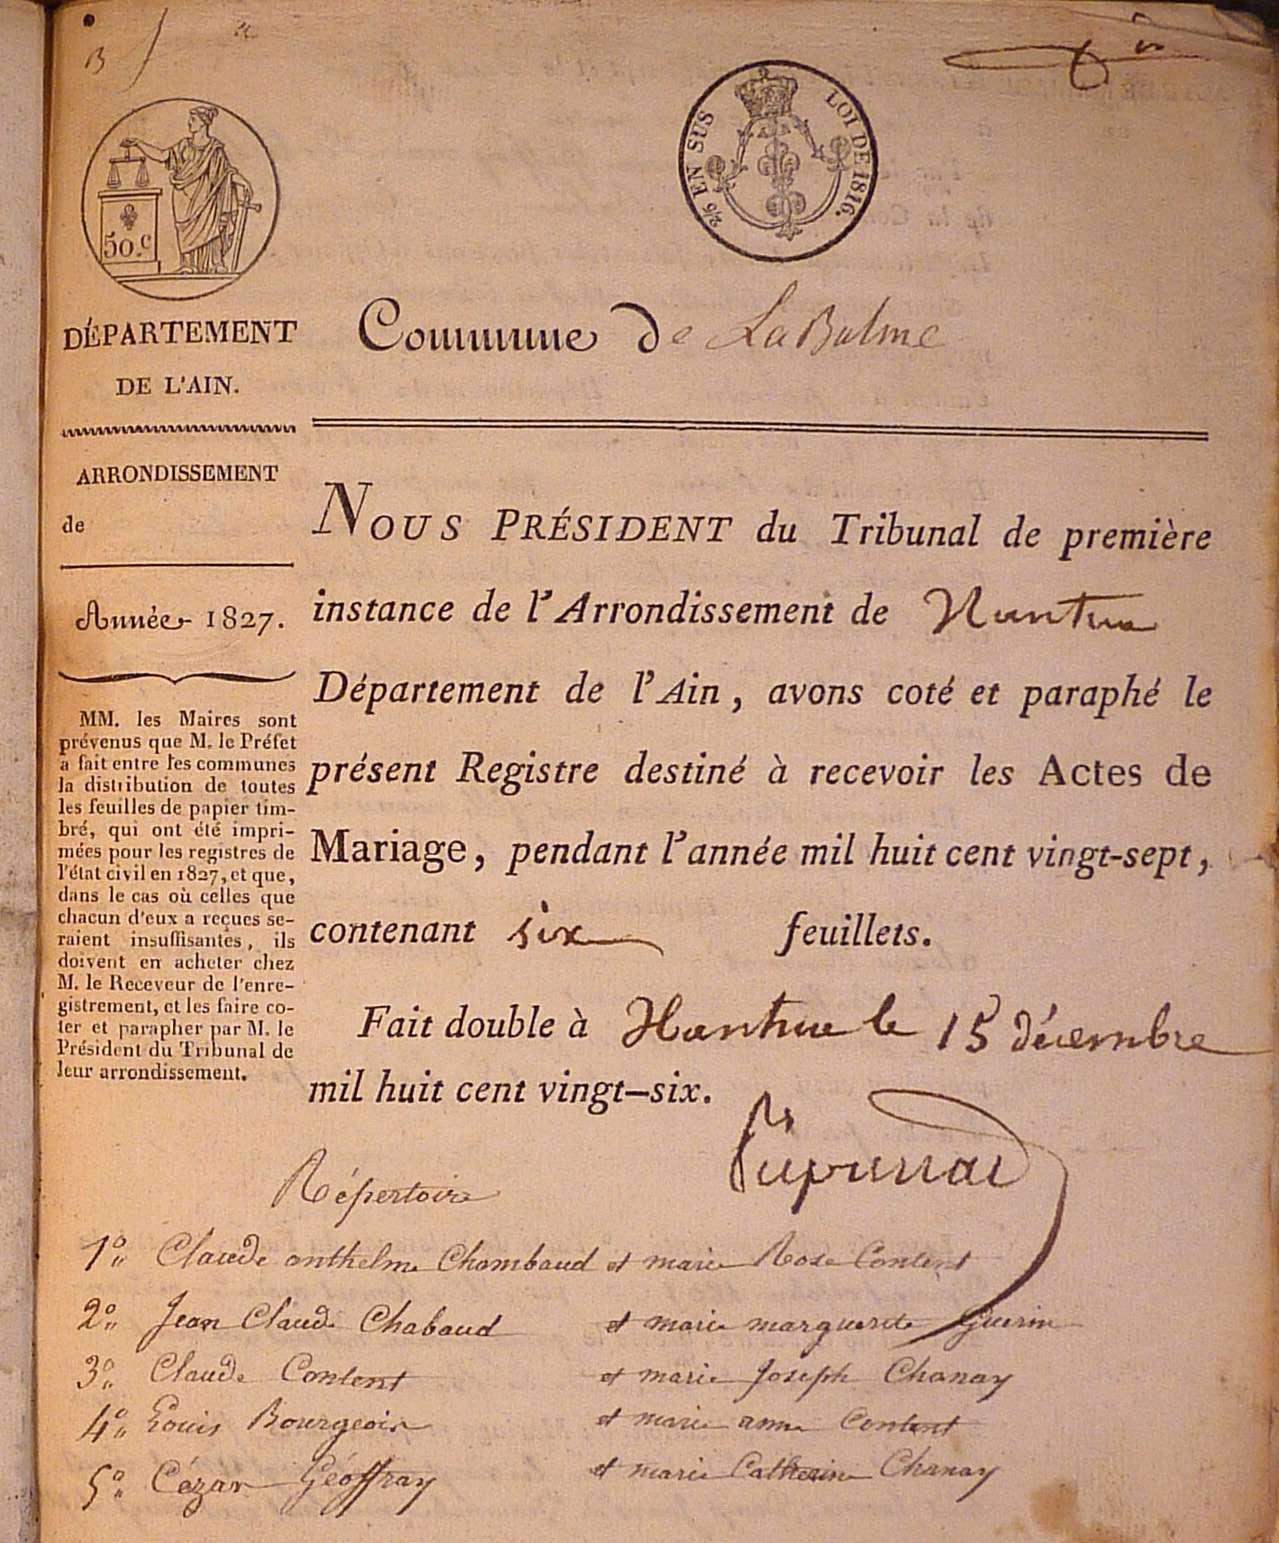 50.c
2/5 EN SUS
LOI DE 1816.
DÉPARTEMENT
DE L'AIN.
Commune de La Balme
ARRONDISSEMENT
de
Année 1827.
MM. les Maires sont
prévenus que M. le Préfet
a fait entre les communes
la distribution de toutes
les feuilles de papier tim-
bré, qui ont été impri-
mées pour les registres de
l'état civil en 1827, et que,
dans le cas où celles que
chacun d'eux a reçues se-
raient insuffisantes, ils
doivent en acheter chez
M. le Receveur de l'enre-
gistrement, et les faire co-
ter et parapher par M. le
Président du Tribunal de
leur arrondissement.
NOUS PRÉSIDENT du Tribunal de première
instance de l'Arrondissement de Nantua
Département de l'Ain, avons coté et paraphé le
présent Registre destiné à recevoir les Actes de
Mariage, pendant l'année mil huit cent vingt-sept,
contenant six feuillets.
Fait double à Nantua le 15 décembre
mil huit cent vingt-six.
Répertoire
1º Claude anthelme Chambaud et marie Rose Content
2º Jean Claude Chabaud et marie marguerite Guerin
3º Claude Content et marie Joseph Chanay
4º Louis Bourgeois et marie anne Content
5º Cézar Géoffray et marie Catherine Chanay